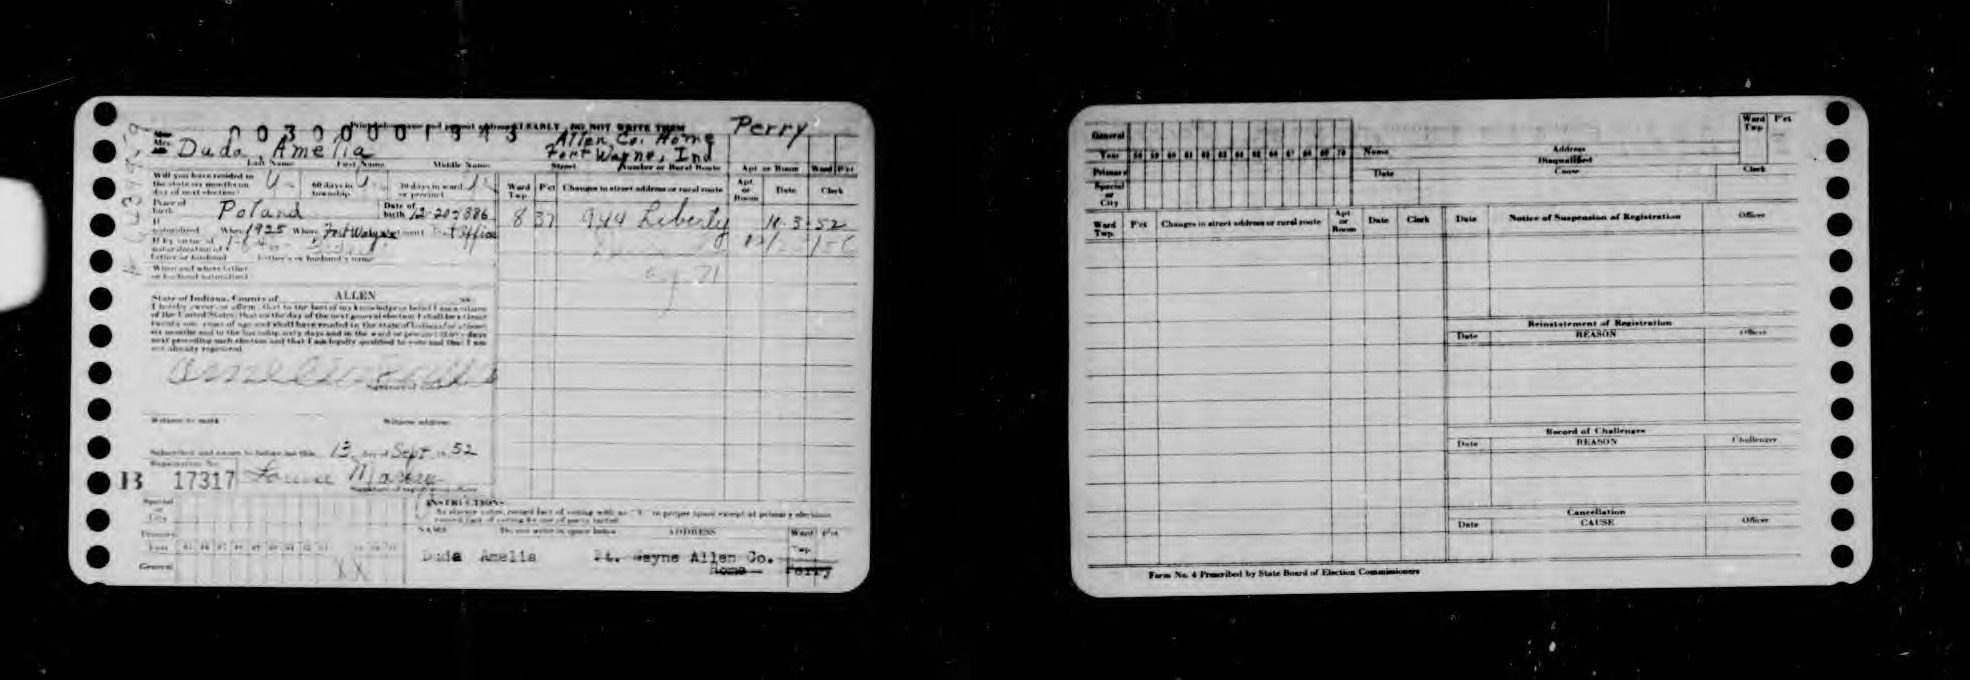 0030001343
CLEARLY DO NOT WRITE THEM
Perry
Mrs.
Duda, Amelia
Allen Co. Home
Fort Wayne, Ind
Last Name First Name Middle Name Street Number or Rural Route Apt or Room Ward P'ct
Will you have resided in the state six months on day of next election?
60 days in township
30 days in ward or precinct
Ward Twp. P'ct Changes in street address or rural route Apt or Room Date Clerk
Place of birth Poland Date of birth 12-20-1886
8 37 944 Liberty 10-3-52
If naturalized When 1925 Where Fort Wayne court Post Office
If by virtue of naturalization of father or husband father's or husband's name
When and where father or husband naturalized
State of Indiana, County of ALLEN ss:
I hereby swear or affirm, that to the best of my knowledge or belief I am a citizen
of the United States; that on the day of the next general election I shall be at least
twenty-one years of age and shall have resided in the state of Indiana for at least
six months and in the township sixty days and in the ward or precinct thirty days
next preceding such election and that I am legally qualified to vote and that I am
not already registered.
Amelia Duda
Witness to mark Witness address
Subscribed and sworn to before me this 13 day of Sept. 19 52
Registration No.
B 17317
Special or City
Primary
Year
General X X
INSTRUCTIONS
record fact of voting with an "X" in proper space except at primary elections
record fact of voting by use of party initial
NAME Do not write in space below ADDRESS Ward Twp. P'ct
Duda Amelia Ft. Wayne Allen Co. Home Perry
General
Year 58 59 60 61 62 63 64 65 66 67 68 69 70
Primary
Special or City
Name Address Ward Twp. P'ct
Disqualified
Date Cause Clerk
Ward Twp. P'ct Changes in street address or rural route Apt or Room Date Clerk
Date Notice of Suspension of Registration Officer
Reinstatement of Registration
Date REASON Officer
Record of Challenges
Date REASON Challenger
Cancellation
Date CAUSE Officer
Form No. 4 Prescribed by State Board of Election Commissioners